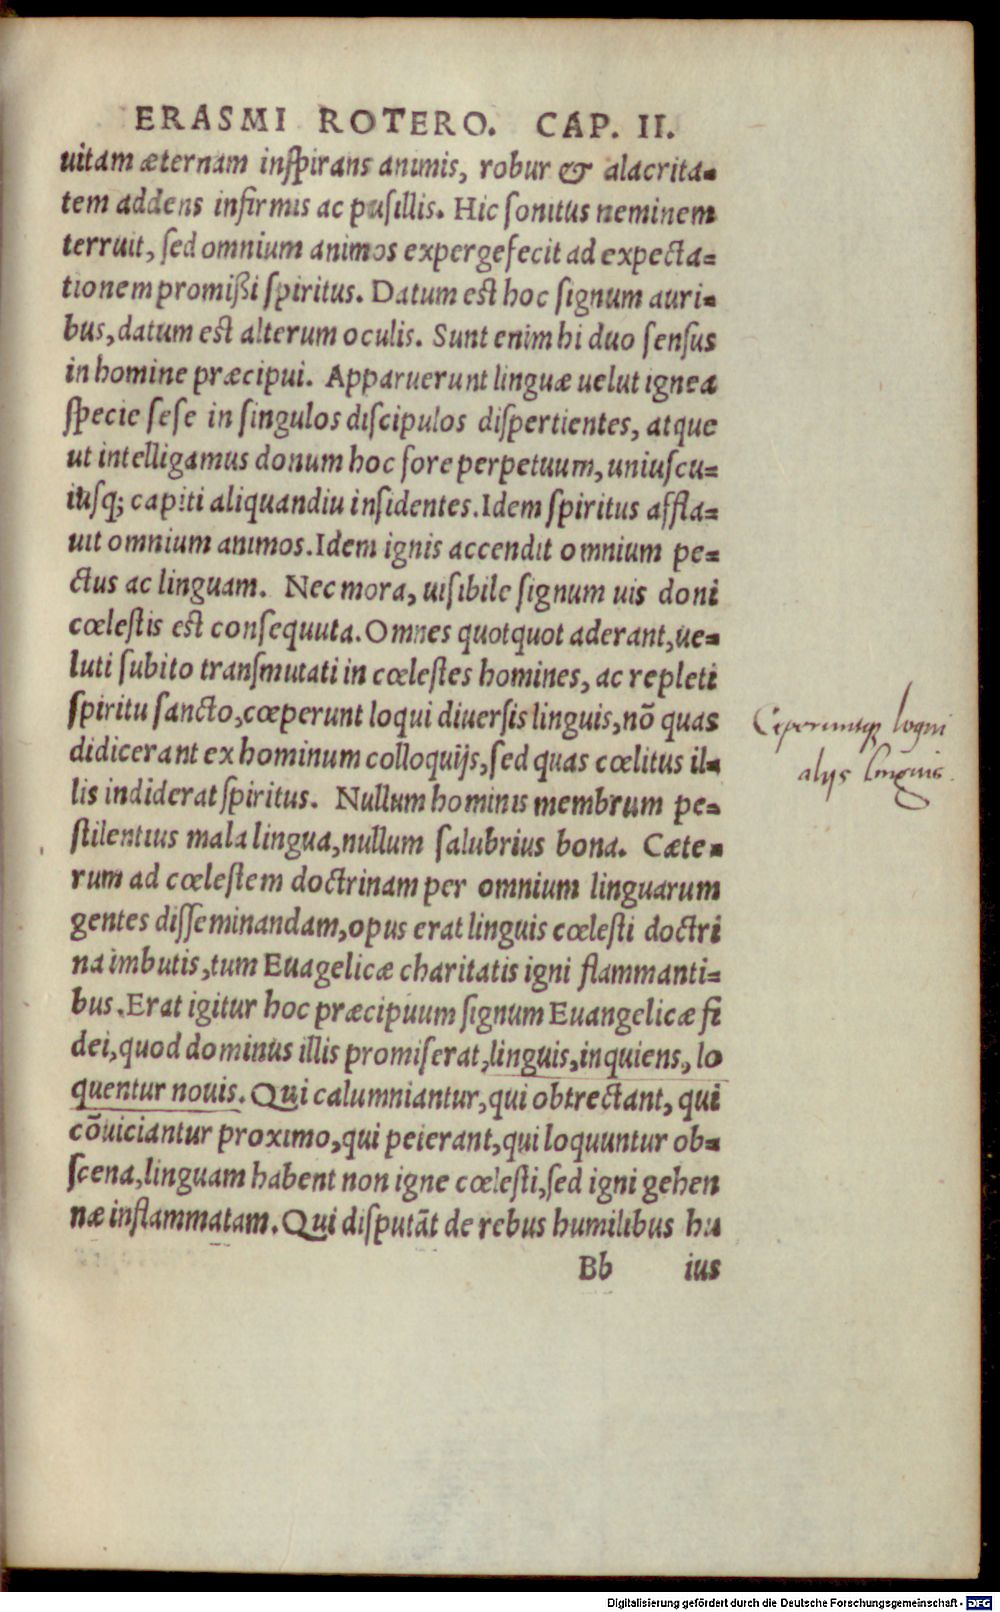 ERASMI ROTERO. CAP. II.
uitam æternam inspirans animis, robur & alacrita=
tem addens infirmis ac pusillis. Hic sonitus neminem
terruit, sed omnium animos expergefecit ad expecta=
tionem promißi spiritus. Datum est hoc signum auri=
bus, datum est alterum oculis. Sunt enim hi duo sensus
in homine præcipui. Apparuerunt linguæ uelut ignea
specie sese in singulos discipulos dispertientes, atque
ut intelligamus donum hoc fore perpetuum, uniuscu=
iusq; capiti aliquandiu insidentes. Idem spiritus affla=
uit omnium animos. Idem ignis accendit omnium pe=
ctus ac linguam. Nec mora, uisibile signum uis doni
cœlestis est consequuta. Omnes quotquot aderant, ue=
luti subito transmutati in cœlestes homines, ac repleti
spiritu sancto, cœperunt loqui diuersis linguis, nō quas
didicerant ex hominum colloquijs, sed quas cœlitus il=
lis indiderat spiritus. Nullum hominis membrum pe=
stilentius mala lingua, nullum salubrius bona. Cæte=
rum ad cœlestem doctrinam per omnium linguarum
gentes disseminandam, opus erat linguis cœlesti doctri
na imbutis, tum Euagelicæ charitatis igni flammanti=
bus. Erat igitur hoc præcipuum signum Euangelicæ fi
dei, quod dominus illis promiserat, linguis, inquiens, lo
quentur nouis. Qui calumniantur, qui obtrectant, qui
cōuiciantur proximo, qui peierant, qui loquuntur ob=
scena, linguam habent non igne cœlesti, sed igni gehen
næ inflammatam. Qui disputāt de rebus humilibus hu
Bb ius
Ceperuntq; loqui
alijs linguis.
Digitalisierung gefördert durch die Deutsche Forschungsgemeinschaft - DFG